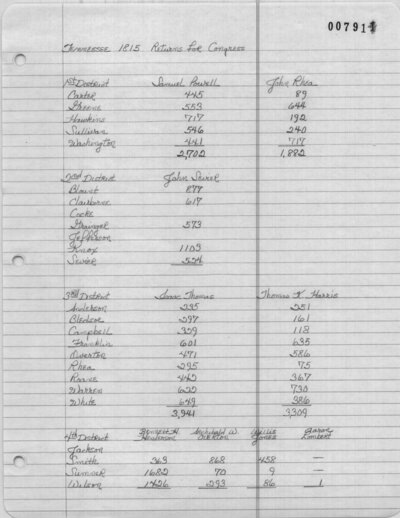 007914
Tennessee 1815 Returns For Congress
1st District Samuel Powell John Rhea
Carter 445 89
Greene 553 644
Hawkins 717 192
Sullivan 546 240
Washington 441 717
2,702 1,882
2nd District John Sevier
Blount 877
Claiborne 617
Cocke
Grainger 573
Jefferson
Knox 1103
Sevier 554
3rd District Isaac Thomas Thomas K. Harris
Anderson 235 251
Bledsoe 297 161
Campbell 359 118
Franklin 601 635
Overton 471 586
Rhea 295 75
Roane 442 367
Warren 622 730
White 649 386
3,941 3,309
4th District Bennett H. Henderson Archibald W. Overton Willis Jones Aaron Lambert
Jackson
Smith 363 868 458 —
Sumner 1682 70 9 —
Wilson 1426 293 86 1